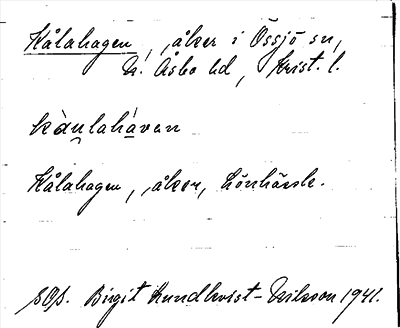 Kålahagen, åker i Össjö sn,
N. Åsbo hd, Krist. l.
kàu̯lahá̱ven
Kålahagen, åker, Lönhässle.
Birgit Lundkvist-Nilsson 1941.